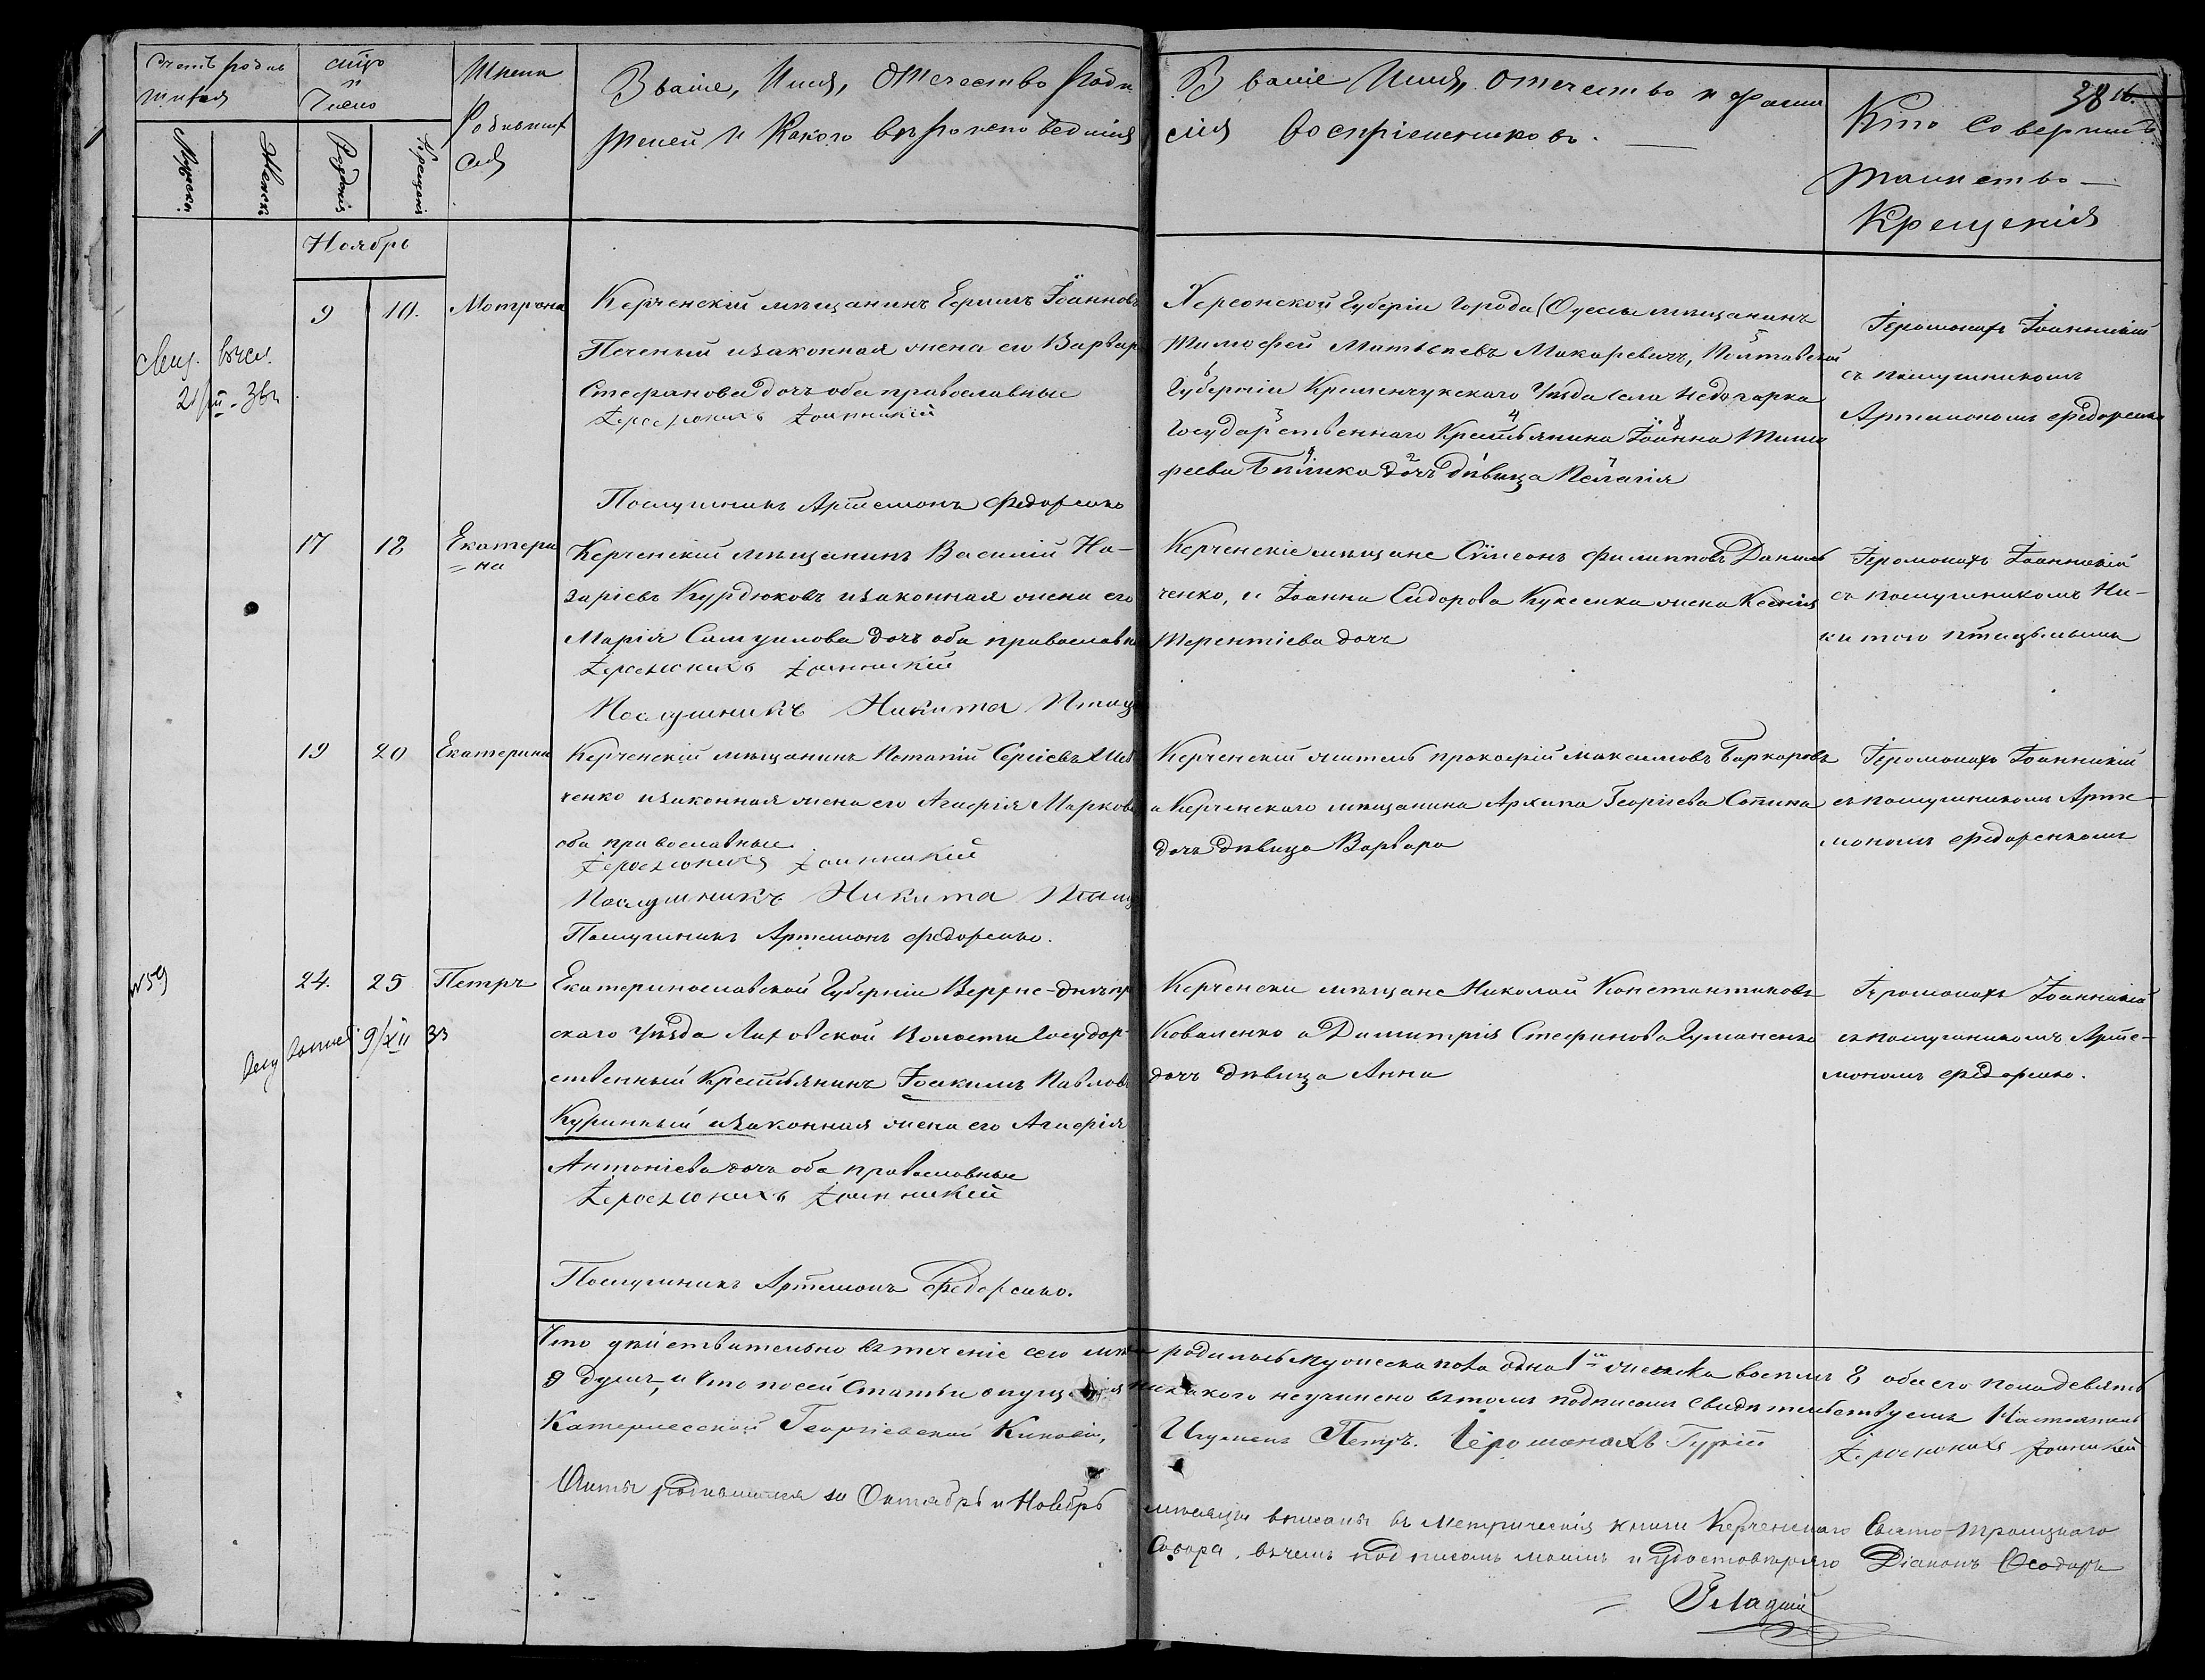 Счетъ родив
шихся
Мужеск.
Женск.
Число
Рожденія
Крещенія
Имена
Родивших
ся
Званіе, Имя, Отечество роди
телей и Какого вѣроисповѣданія
Званіе Имя, Отечество и фами
лія воспріемниковъ.
38 16.
Кто Совершилъ
таинство
Крещенія
Ноябрь
9 10. Мотрона
Керченскій мѣщанинъ Ермилъ Іоанновъ
Печеный изаконная жена его Варвар
Стефанова дочъ оба православные
Іеромонахъ Іоанникій
Послушникъ Артемонъ Федоренко
Херсонской Губерніи Города Одессы мѣщанинъ
Тимофей Матвѣевъ Макаревичъ, Полтавской
Губерніи Кременчукского Уѣзда села Недогарка
Государственнаго Крестьянина Іоанна Тимо
феева дочъ дѣвица Пелагія
Іеромонахъ Іоанникій
съ послушникомъ
Артемономъ Федоренко
17 18 Екатери
=на
Керченскій мѣщанинъ Василій На-
заріевъ Курдюковъ изаконная жена его
Марія Самуилова дочъ оба православны
Іеромонахъ Іоанникій
Послушникъ Никита Птиц
Керченскіе мѣщане Сѵмеонъ Филипповъ Данил
ченко, и Іоанна Сидорова Куксенка жена Ксенія
Терентіева дочъ
Іеромонахъ Іоанникій
съ послушникомъ Ни-
китою
19 20 Екатерина
Керченскій мѣщанинъ Потапій Сергіевъ Шев
ченко изаконная жена его Агафія Маркова
оба православные
Іеромонахъ Іоанникій
Послушникъ Никита Птиц
Послушникъ Артемонъ Федоренко.
Керченскій житель Прокофій Максимовъ
а Керченскаго мѣщанина Архипа Георгіева Сопина
дочъ дѣвица Варвара
Іеромонахъ Іоанникій
съ послушникомъ Арте-
мономъ Федоренкомъ
№59
24. 25 Петръ
9/XII 33
Екатеринославской Губерніи Верхне-днѣпр
скаго Уѣзда Лиховской Волости Государ-
ственный Крестьянинъ Іоакимъ Павловъ
Куринный изаконная жена его Агафія
Антоніева дочъ оба православные
Іеромонахъ Іоанникій
Послушникъ Артемонъ Федоренко.
Керченскіе мѣщане Николай Константиновъ
Коваленко а Димитрія Стефанова Гуманенко
дочъ дѣвица Анна
Іеромонахъ Іоанникій
съ послушникомъ Арте-
мономъ Федоренко.
Что дѣйствительно въ теченіе сего родилось мужеска пола одна 1 женска восемь 8 обоего пола девять
9 душъ, и что по сей Статьи опущенія никакого неучинено въ томъ подписомъ Свидѣтельствуемъ Настоятель
Катерлесской Георгіевской Киновіи, Игуменъ Петръ. Іеромонахъ Гурій Іеромонахъ Іоанникій
Акты родившимся за Октябрь и Ноябрь мѣсяцы вписаны въ метрическія книги Керченскаго Свято-Троицкаго
Собора, въ чемъ подписомъ моимъ и удостовѣряю Діаконъ Ѳеодоръ
Гладкій